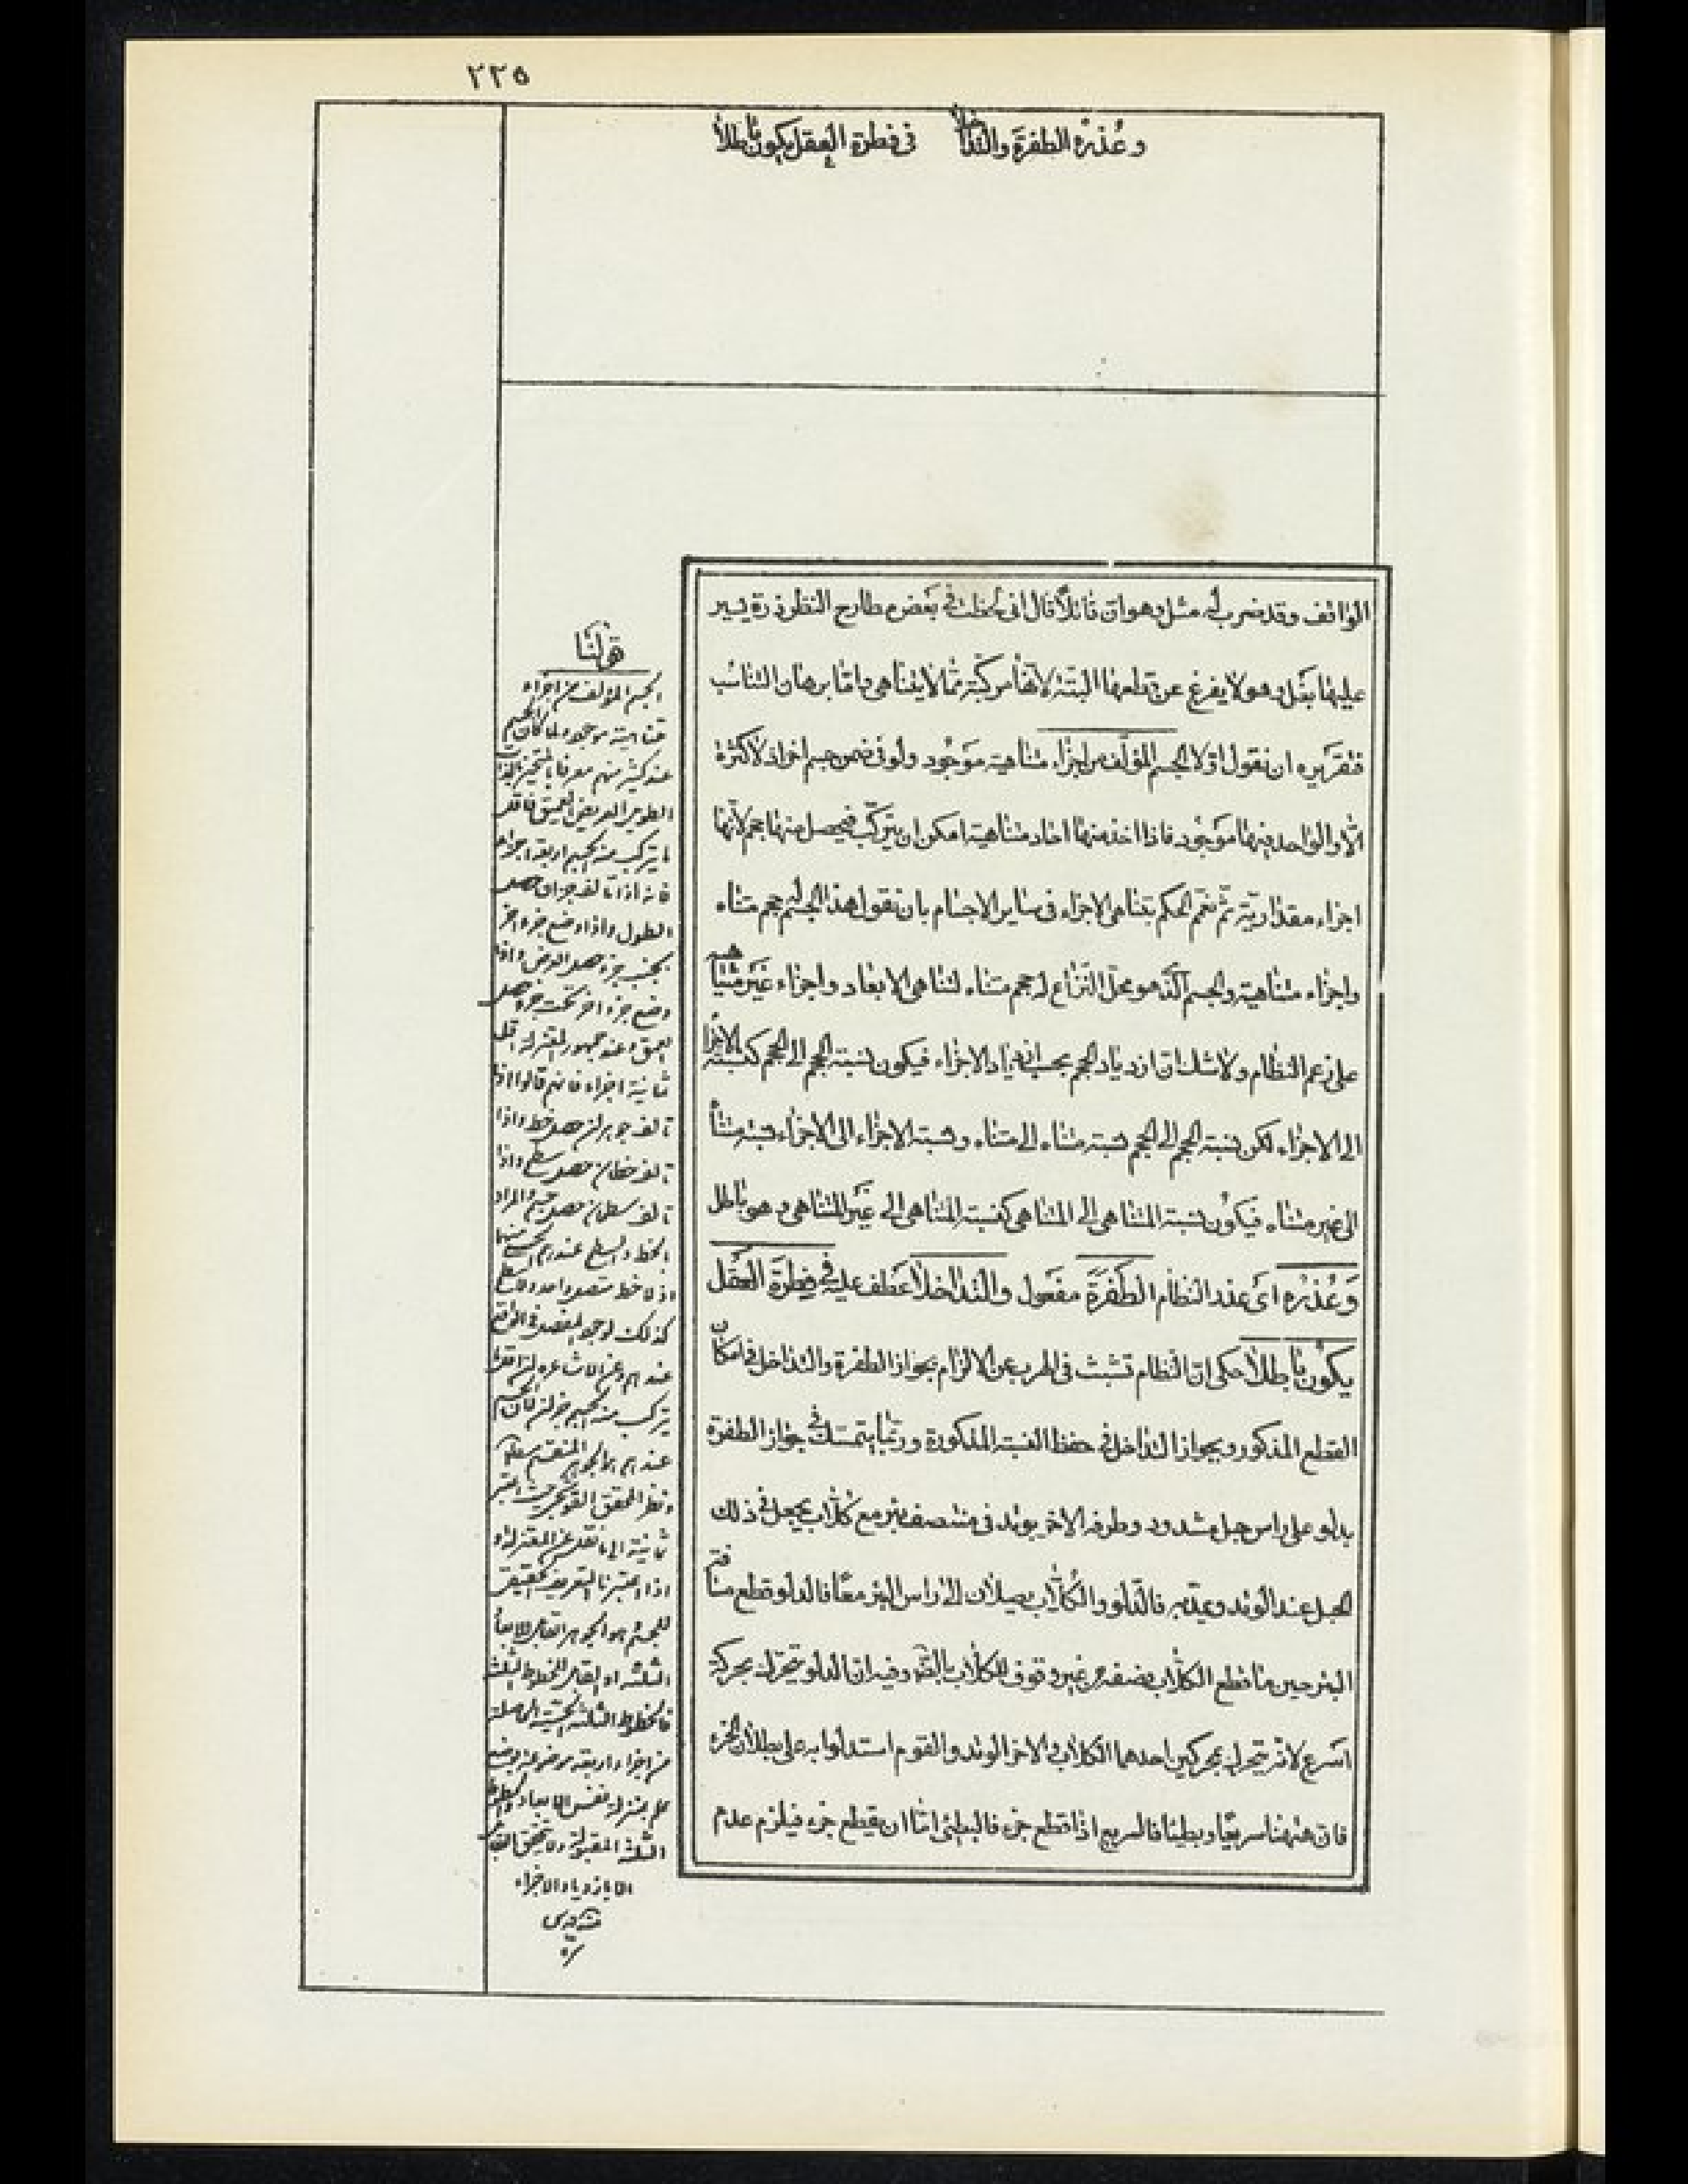 ٢٢٥
وعُذرُه الطفرةَ والتداخلا في فطرة العقل يكون باطلاً
الواقف وقد ضرب له مثل وهو ان قائلاً قال انى لحظت فى بعض مطارح النظر ذرة يسير
عليها بغل وهو لا يفرغ عن قطعها البتة لانها مركبة مما لا يتناهى واما برهان التناسب
فتقريره ان نقول اولا الجسم المؤلف من اجزاء متناهية موجود ولو فى ضمن جسم اخر اذ لا كثرة
الا والواحد فيها موجود فاذا اخذ منها احاد متناهية امكن ان يتركب فيحصل منها حجم لانها
اجزاء مقدارية ثم نعمّ الحكم بتناهى الاجزاء فى ساير الاجسام بان نقول هذا الجسم له حجم متناه
واجزاء متناهية والجسم الذى هو محل النزاع له حجم متناه لتناهى الابعاد واجزاء غير متناهية
على زعم النظام ولا شك ان ازدياد الحجم بحسب ازدياد الاجزاء فيكون نسبة الحجم الى الحجم كنسبة الاجزاء
الى الاجزاء لكن نسبة الحجم الى الحجم نسبة متناه الى متناه ونسبة الاجزاء الى الاجزاء نسبة متناه
الى غير متناه فيكون نسبة المتناهى الى المتناهى كنسبة المتناهى الى غير المتناهى وهو باطل
وَعُذْرُه اى عند النظام الطَفْرَةَ مفعول والتداخلا عطف عليه فى فِطرَةِ العَقل
يكون باطلاً حكى ان النظام تشبث فى الهرب عن الالزام بجواز الطفرة والتداخل فى امكان
القطع المذكور وبجواز التداخل فى حفظ النسبة المذكورة وربما يتمسك فى جواز الطفرة
بدلو على راس حبل مشدود وطرفه الاخر بوتد فى منتصف بئر مع كلّاب يجعل فى ذلك
الحبل عند الوتد ويمدّ به فالدّلو والكُلّاب يصلان الى راس البئر معًا فالدلو قطع مسافة
البئر حين ما قطع الكلّاب نصفه من غير وقوف للكلّاب بالضرورة وفيه ان الدلو يتحرك بحركة
اسرع لانه يتحرك بحركتين احدهما الكلاب والاخر الوتد والقوم استدلوا به على بطلان الجزء
فان هيهنا سريعًا وبطيئا فالسريع اذا قطع جزء فالبطئ اما ان يقطع جزء فيلزم عدم
قولنا
الجسم المؤلف من اجزاء
متناهية موجود لما كان الجسم
عند كثير منهم معرفا بالمتحيز
الطويل العريض العميق فاقل
ما يتركب منه الجسم اربعة اجزاء
فانه اذا تالف جزءان حصل
الطول واذا وضع جزء اخر
بجنب جزء حصل العرض واذا
وضع جزء اخر تحت جزء حصل
العمق وعند جمهور المعتزلة اقل
ثمانية اجزاء فانهم قالوا اذا
تالف جوهران حصل خط واذا
تالف خطان حصل سطح واذا
تالف سطحان حصل جسم والمراد
بالخط والسطح عندهم
اذ لا خط متصل واحد ولا سطح
كذلك لوجود المفصل فى الواقع
عندهم وعن الاشاعرة ان اقل ما
يتركب منه الجسم جزءان لان الجسم
عندهم هو الجوهر المنقسم مطلقا
ونظر المحقق القوشجى حيث اعتبر
ثمانية الى ما نقل عن المعتزلة
اذا اعتبرنا التعريف الحقيقى
للجسم هو الجوهر القابل للابعاد
الثلثة او القابل للخطوط الثلثة
فالخطوط الثلثة الجسمية الحاصلة
من اجزاء اربعة موضوعة بوضع
بمنزلة نفس الابعاد والخطوط
الثلثة المقبولة ولا يتحقق القابل
الا بازدياد الاجزاء
منه قدس
سره